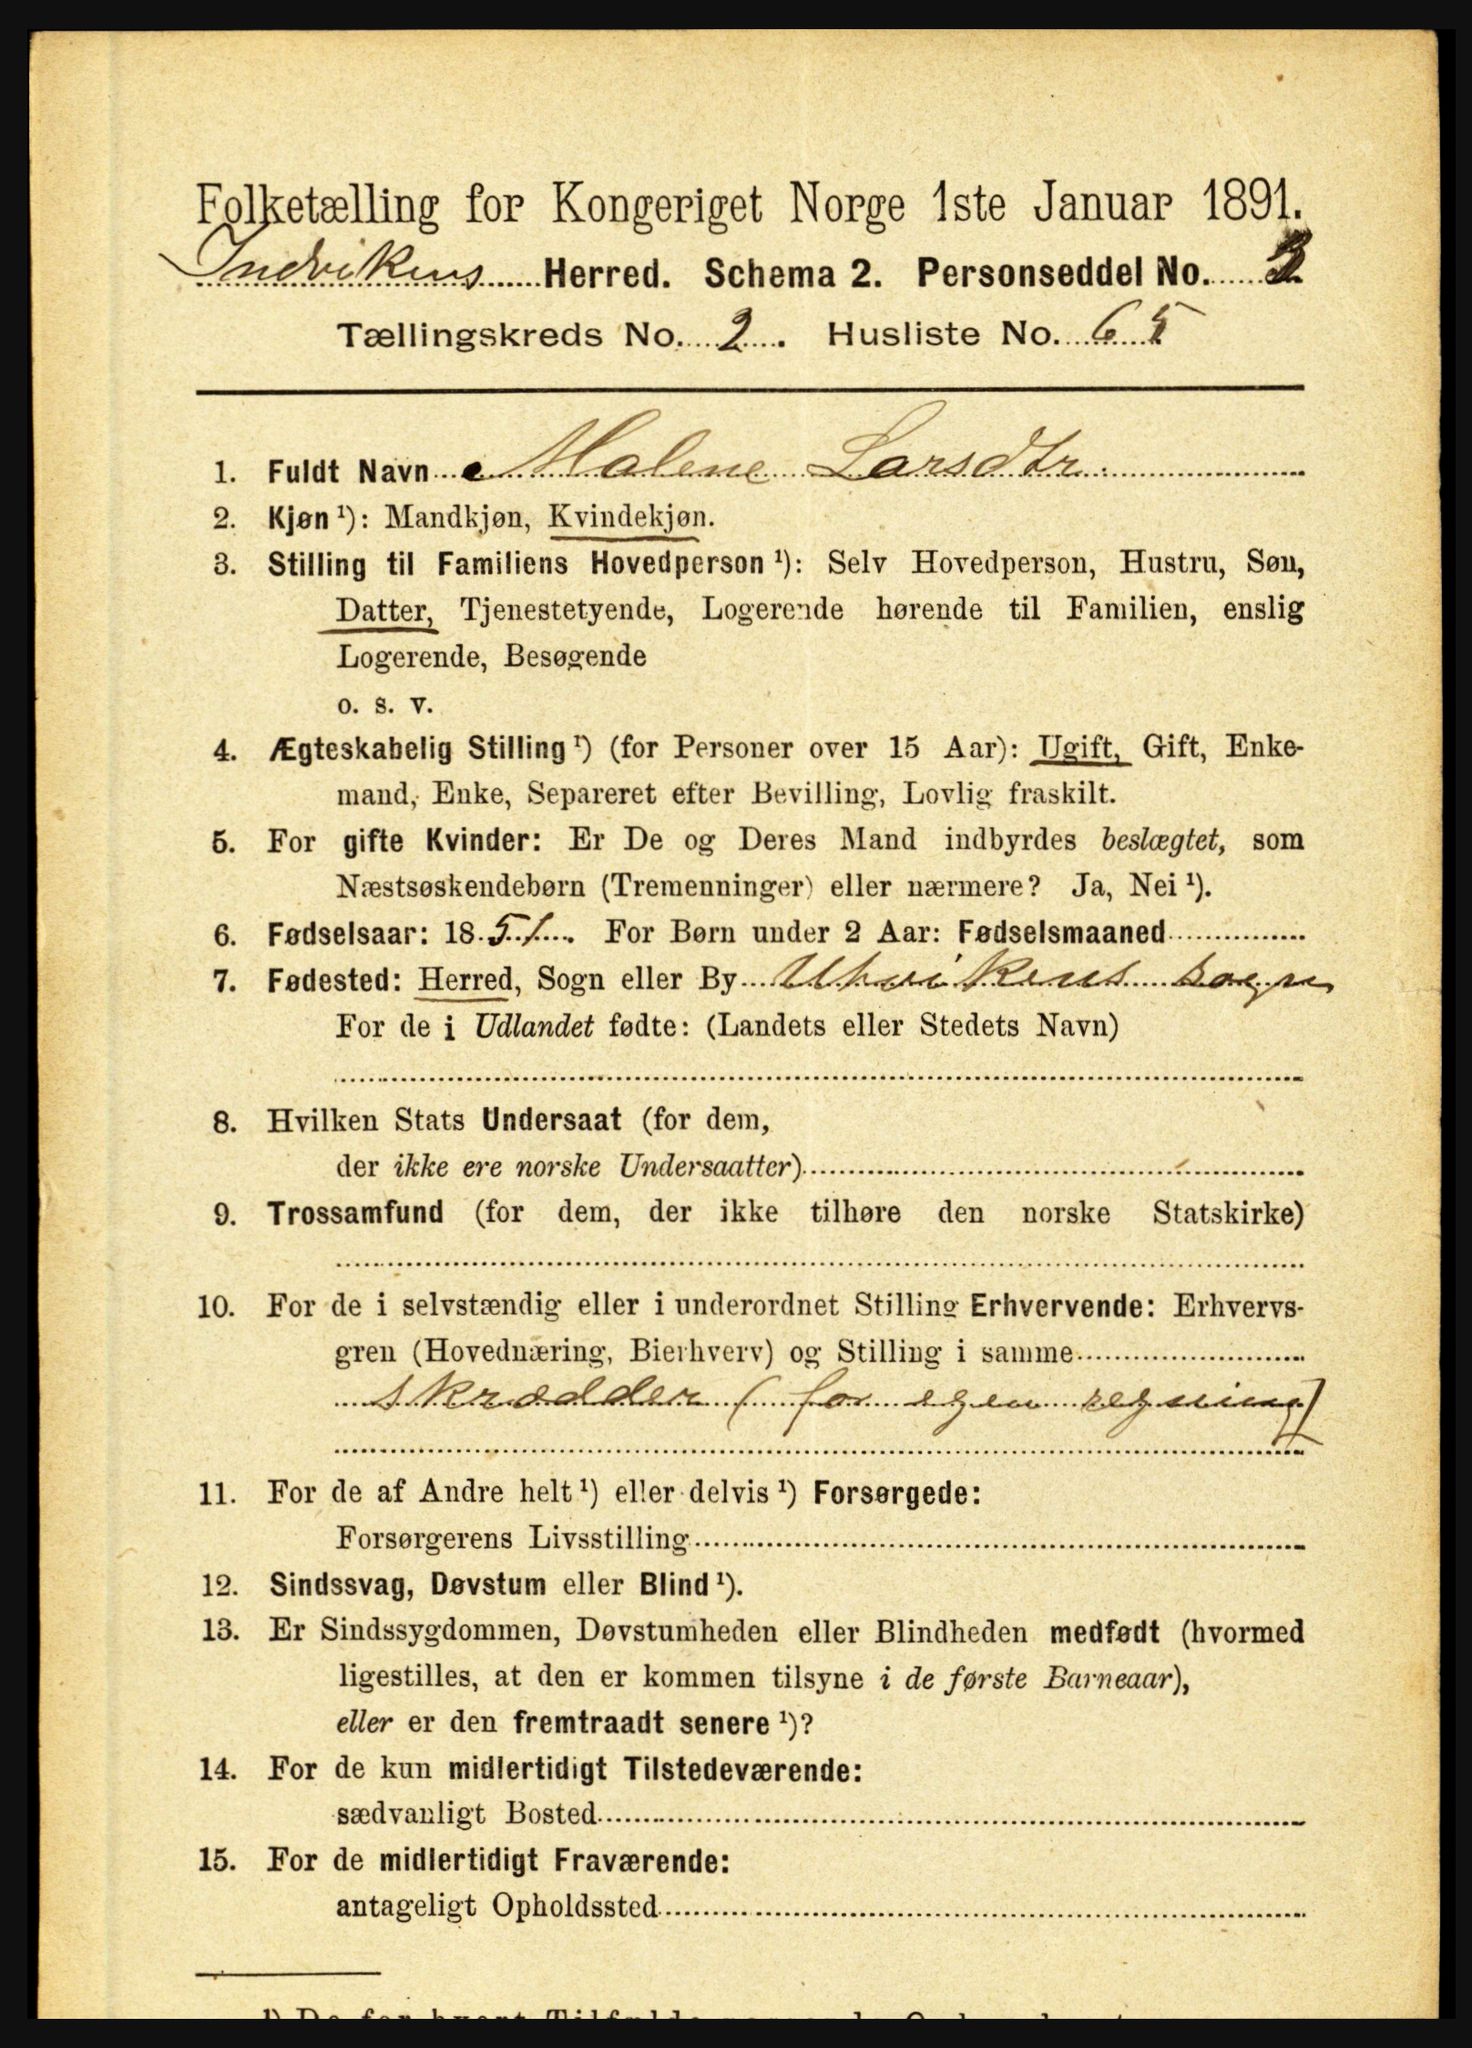 Folketælling for Kongeriget Norge 1ste Januar 1891.
Indvikens Herred. Schema 2. Personseddel No.
Tællingskreds No. 2. Husliste No. 65
1. Fuldt Navn Malene Larsdtr.
2. Kjøn¹): Mandkjøn, Kvindekjøn.
3. Stilling til Familiens Hovedperson¹): Selv Hovedperson, Hustru, Søn,
Datter, Tjenestetyende, Logerende hørende til Familien, enslig
Logerende, Besøgende
o. s. v.
4. Ægteskabelig Stilling¹) (for Personer over 15 Aar): Ugift, Gift, Enke-
mand, Enke, Separeret efter Bevilling, Lovlig fraskilt.
5. For gifte Kvinder: Er De og Deres Mand indbyrdes beslægtet, som
Næstsøskendebørn (Tremenninger) eller nærmere? Ja, Nei¹).
6. Fødselsaar: 1851. For Børn under 2 Aar: Fødselsmaaned
7. Fødested: Herred, Sogn eller By Utvikens sogn
For de i Udlandet fødte: (Landets eller Stedets Navn)
8. Hvilken Stats Undersaat (for dem,
der ikke ere norske Undersaatter)
9. Trossamfund (for dem, der ikke tilhøre den norske Statskirke)
10. For de i selvstændig eller i underordnet Stilling Erhvervende: Erhvervs-
gren (Hovednæring, Bierhverv) og Stilling i samme
skrædder (for egen regning)
11. For de af Andre helt¹) eller delvis¹) Forsørgede:
Forsørgerens Livsstilling
12. Sindssvag, Døvstum eller Blind¹).
13. Er Sindssygdommen, Døvstumheden eller Blindheden medfødt (hvormed
ligestilles, at den er kommen tilsyne i de første Barneaar),
eller er den fremtraadt senere¹)?
14. For de kun midlertidigt Tilstedeværende:
sædvanligt Bosted
15. For de midlertidigt Fraværende:
antageligt Opholdssted